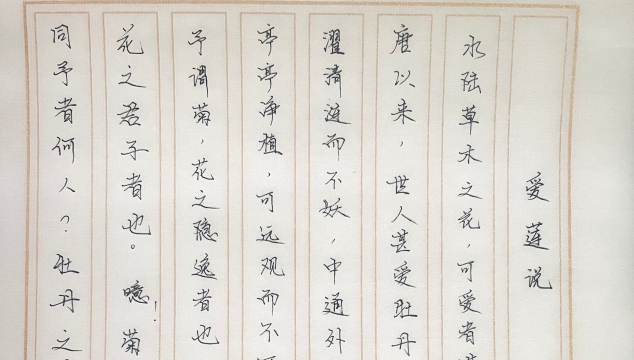 爱莲说
水陆草木之花，可爱者
唐以来，世人甚爱牡丹
濯清涟而不妖，中通外
亭亭净植，可远观而不
予谓菊，花之隐逸者也
花之君子者也。噫！菊
同予者何人？牡丹之